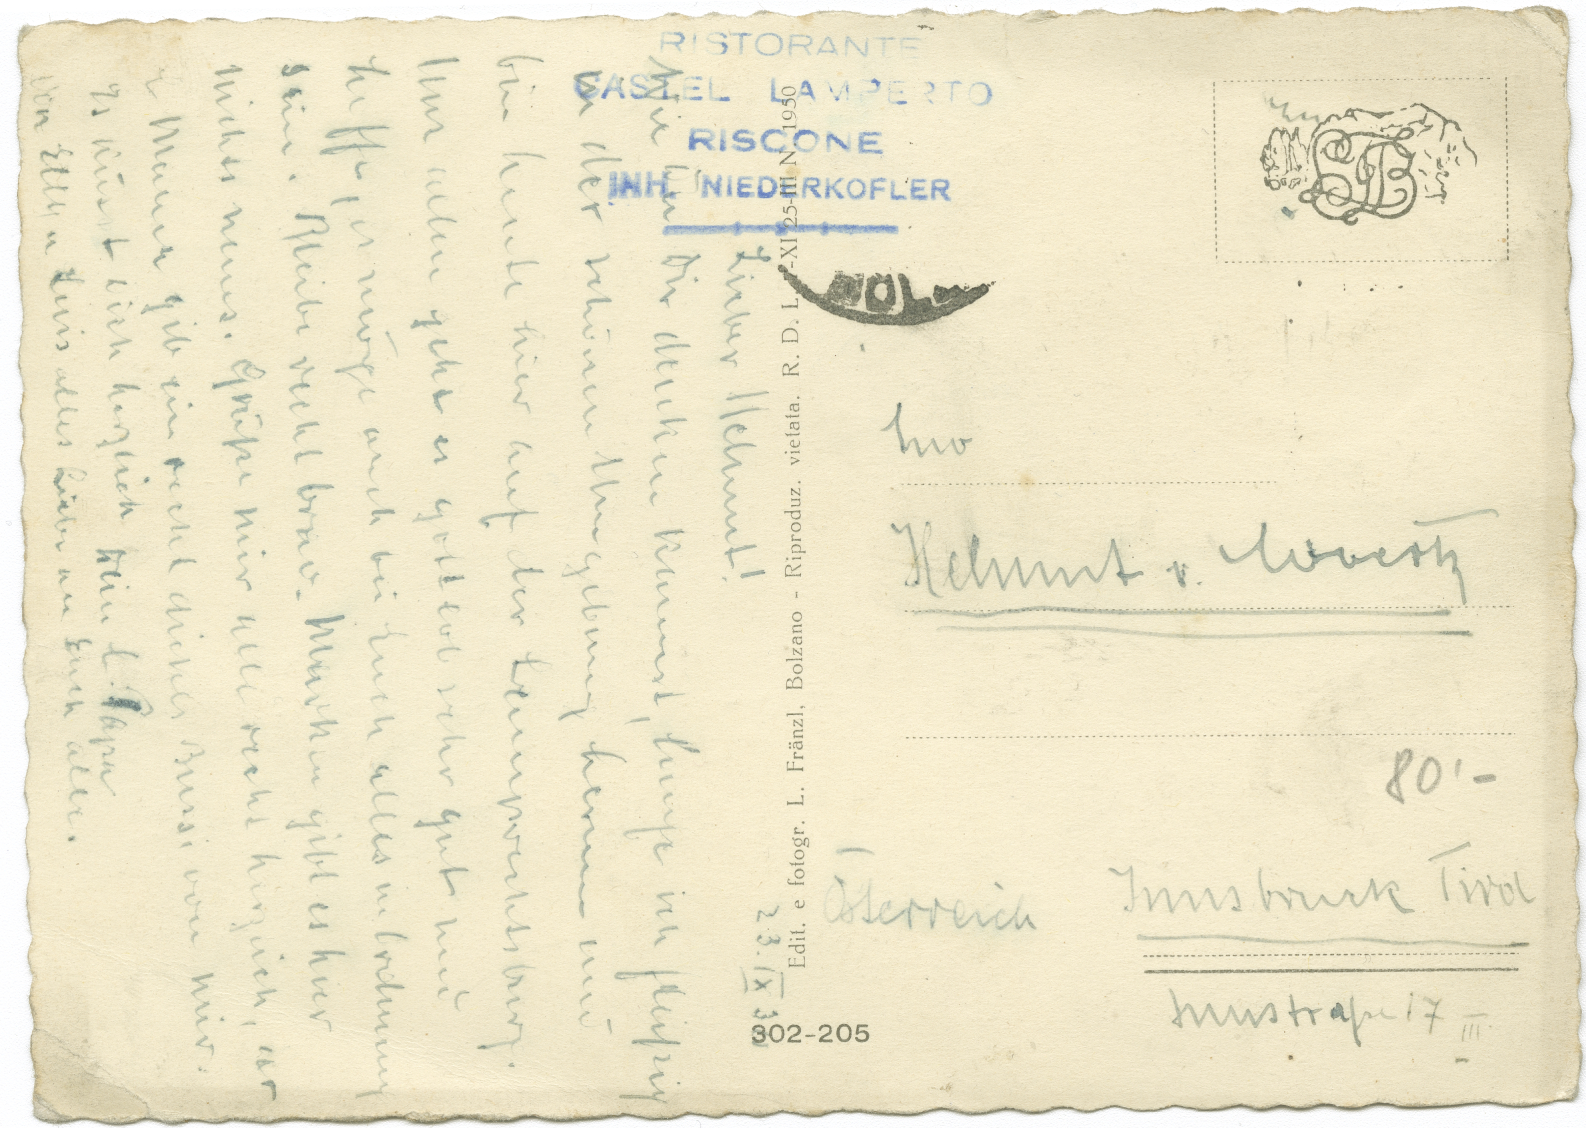 RISTORANTE
CASTEL LAMPERTO
RISCONE
INH. NIEDERKOFLER
23.IX
Lieber Helmut!
Wie Du Dir denken kannst, steige ich fleißig
in der schönen Umgebung herum und
bin heute hier auf der Lamprechtsburg.
Uns allen geht es gottlob sehr gut und
hoffe, es möge auch bei Euch alles in Ordnung
sein. Bleibe recht brav. Marken gibt es hier
nichts neues. Grüße mir all recht herzlich,
Mama gib ein recht dickes Bussi von mir.
Es küsst dich herzlich Dein l. Papa
von Elli u Luis alles Liebe an Euch alle.
Edit. e fotogr. L. Fränzl, Bolzano - Riproduz. vietata. R. D. L. -XI 25-III N 1950
302-205
FB
Helmut v.
80'-
Österreich
Innsbruck Tirol
Innstraße 17 III.